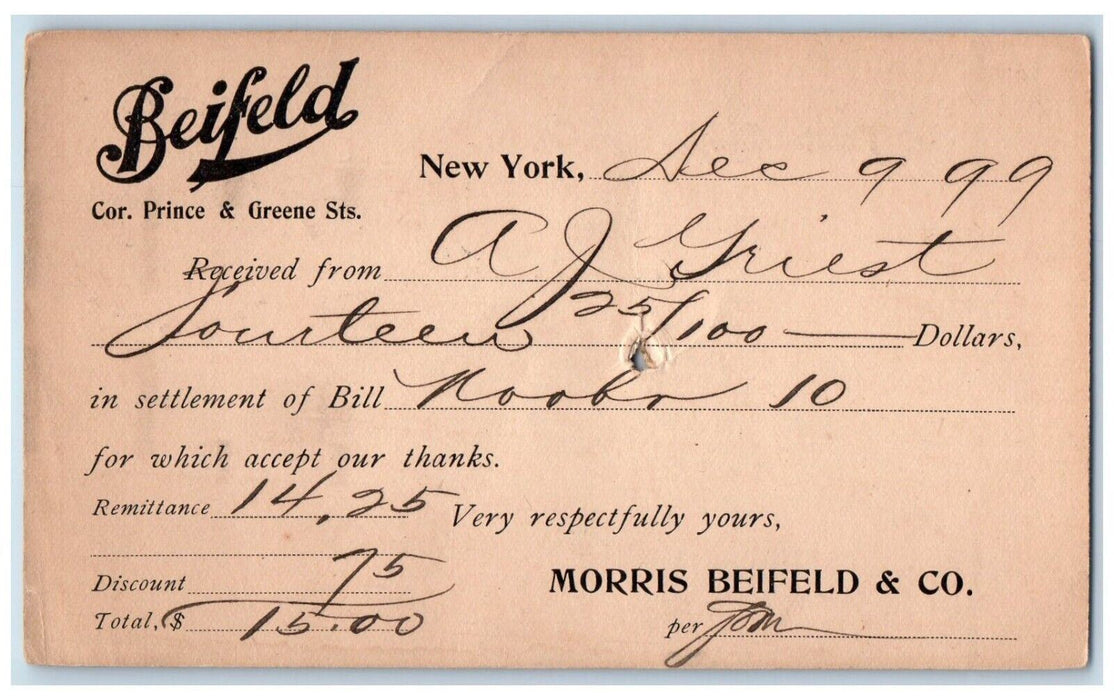 Beifeld
Cor. Prince & Greene Sts.
New York, Dec 9 99
Received from A J Griest
Fourteen 25/100 Dollars,
in settlement of Bill 10
for which accept our thanks.
Remittance 14,25
Very respectfully yours,
Discount 75
MORRIS BEIFELD & CO.
Total, $ 15.00
per